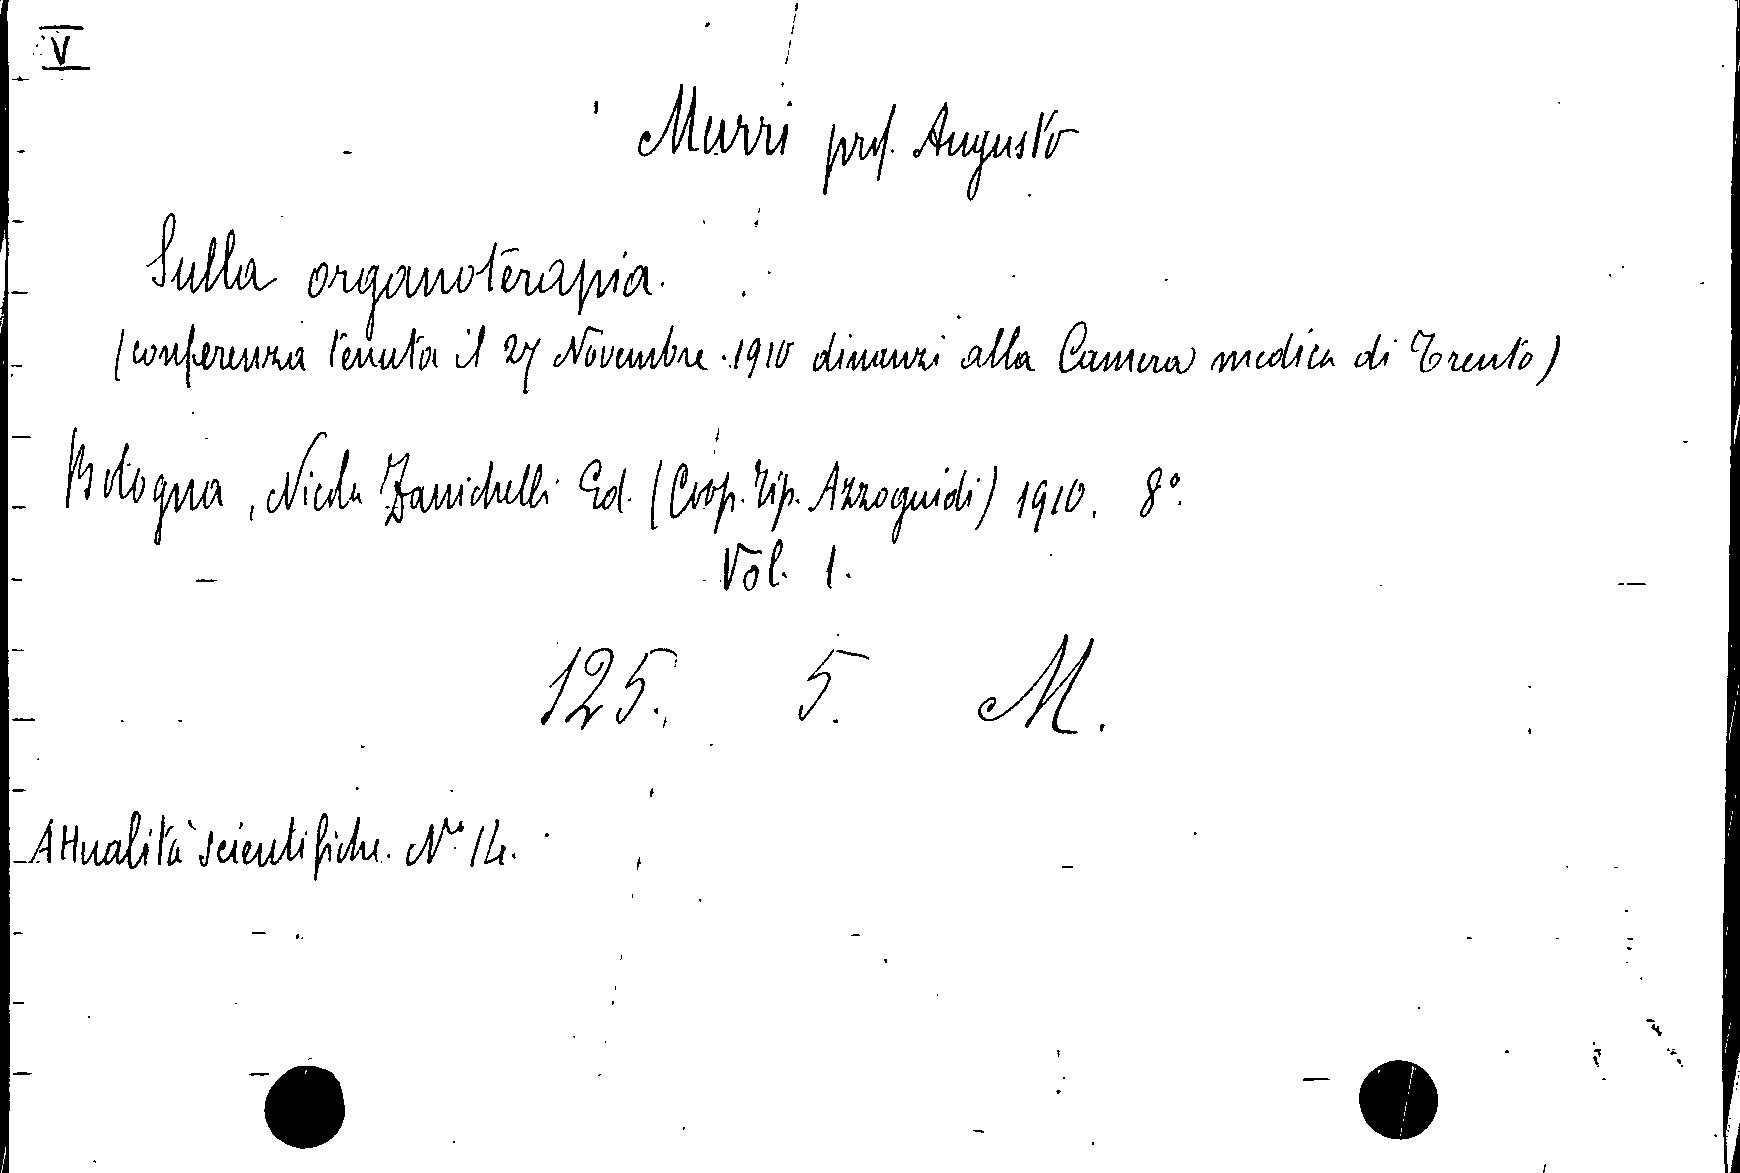 V
Murri prof. Augusto
Sulla organoterapia.
(conferenza tenuta il 27 Novembre 1910 dinanzi alla Camera medica di Trento)
Bologna, Nicola Zanichelli Ed. (Coop. Tip. Azzoguidi) 1910. 8°.
Vol. 1.
125. 5. M.
Attualità scientifiche. N.° 14.